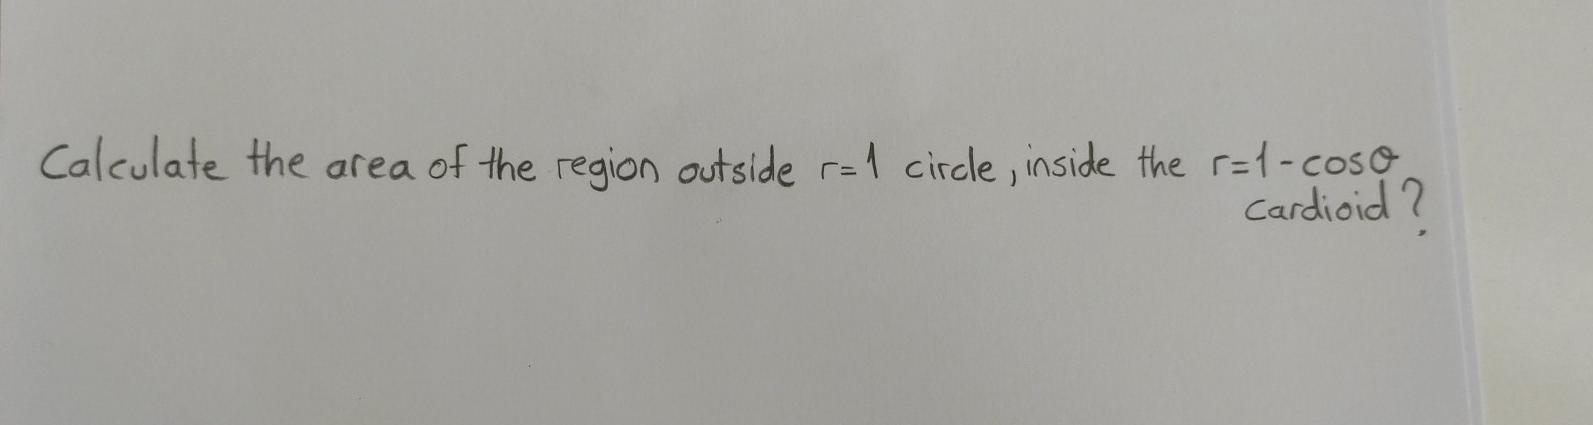 Calculate the area of the region outside r=1 circle, inside the r=1-cosθ
cardioid?